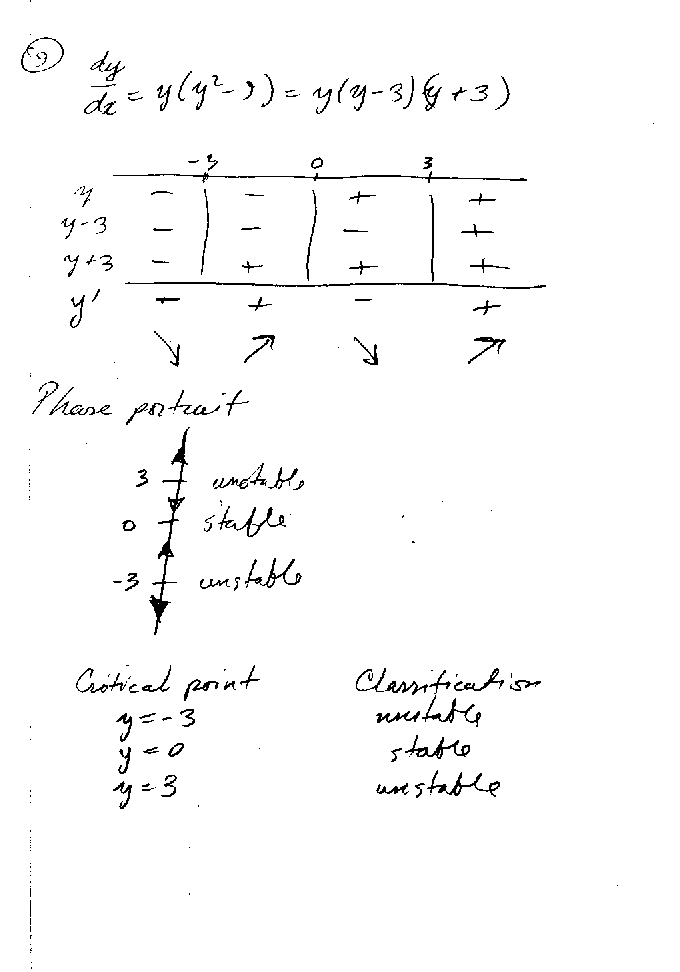 9
dy/dx = y(y²-9) = y(y-3)(y+3)
-3 0 3
y - - + +
y-3 - - - +
y+3 - + + +
y' - + - +
↘ ↗ ↘ ↗
Phase portrait
3 unstable
0 stable
-3 unstable
Critical point Classification
y=-3 unstable
y=0 stable
y=3 unstable